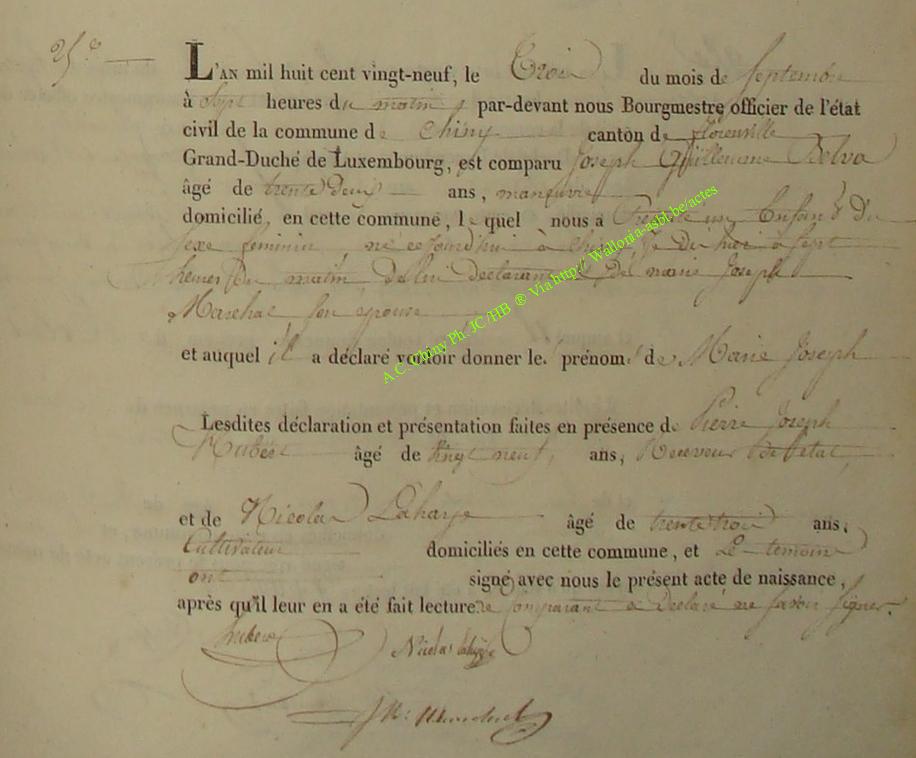 25e
L'AN mil huit cent vingt-neuf, le Trois du mois de Septembre
à Sept heures du matin, par-devant nous Bourgmestre officier de l'état
civil de la commune de Chiny canton de florenville
Grand-Duché de Luxembourg, est comparu Joseph Guilleaume Delva
âgé de trente deux ans, manœuvre
domicilié, en cette commune, lequel nous a Presenté un Enfant du
Sexe feminin né cejourdhui à Chiny à Sept
heures du matin de lui Declarant et de marie Joseph
Marechal Son épouse
et auquel il a déclaré vouloir donner les prénoms de Marie Joseph
Lesdites déclaration et présentation faites en présence de Pierre Joseph
Hubert âgé de Vingt neuf, ans, Receveur de l'etat,
et de Nicolas Lahaye âgé de trente trois ans,
Cultivateur domiciliés en cette commune, et Le temoins
ont signé avec nous le présent acte de naissance,
après qu'il leur en a été fait lecture. le Comparant a Declaré ne savoir signer.
hubert
Nicolas lahaye
A.C. Chiny Ph. JC/HB ® Via http:// Wallonia-asbl.be/actes